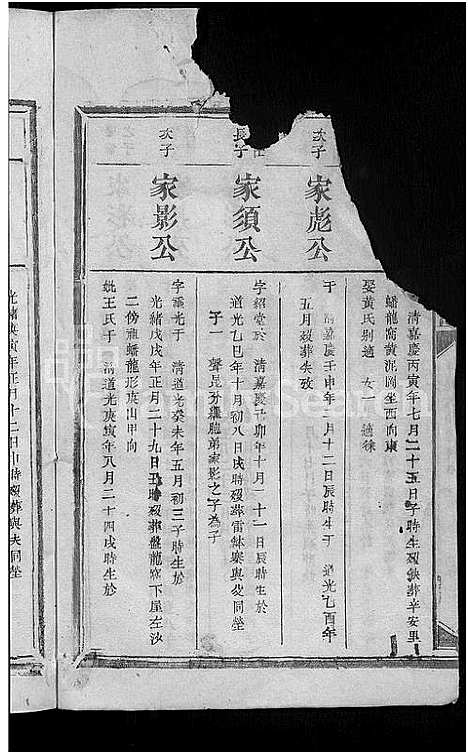 清嘉慶丙寅年七月二十五日子時生歿缺葬辛安里
蟠龍窩黄泥圖坐西向東
娶黄氏别適 女一 適徐
次子
家彪公
于 清嘉慶壬申年 月十二日辰時生于 道光乙酉年
五月歿葬失攷
長子
家須公
字紹堂於 清嘉慶 卯年十月二十一日辰時生於
道光乙巳年十月初八日戌時歿葬雷 寨與 同塋
子一 聲昆 胞弟家影之子為子
次子
家影公
字 光于 清道光癸未年五月初三子時生於
光緒戊戌年正月二十九日 時歿葬盤龍窩下屋左沙
二 蟠龍形庚山甲向
妣王氏于 清道光庚寅年八月二十四戌時生於
光緒庚寅年正月十二日 時歿葬與夫同塋